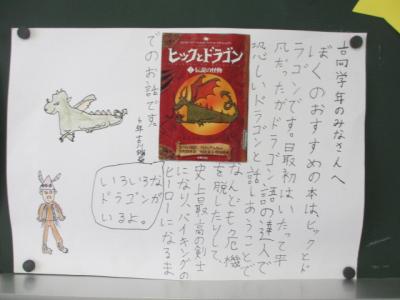 高学年のみなさんへ
ぼくのおすすめの本は、ヒックとド
ラゴンです。最初はいたって平
凡だったがドラゴン語の達人で
恐しいドラゴンと話しあうことで
なんども危機
を脱したりして、
史上最高の剣士
になり、バイキングの
ヒーローになるま
でのお話です。
ヒックとドラゴン
伝説の怪物
いろいろな
ドラゴンが
いるよ。